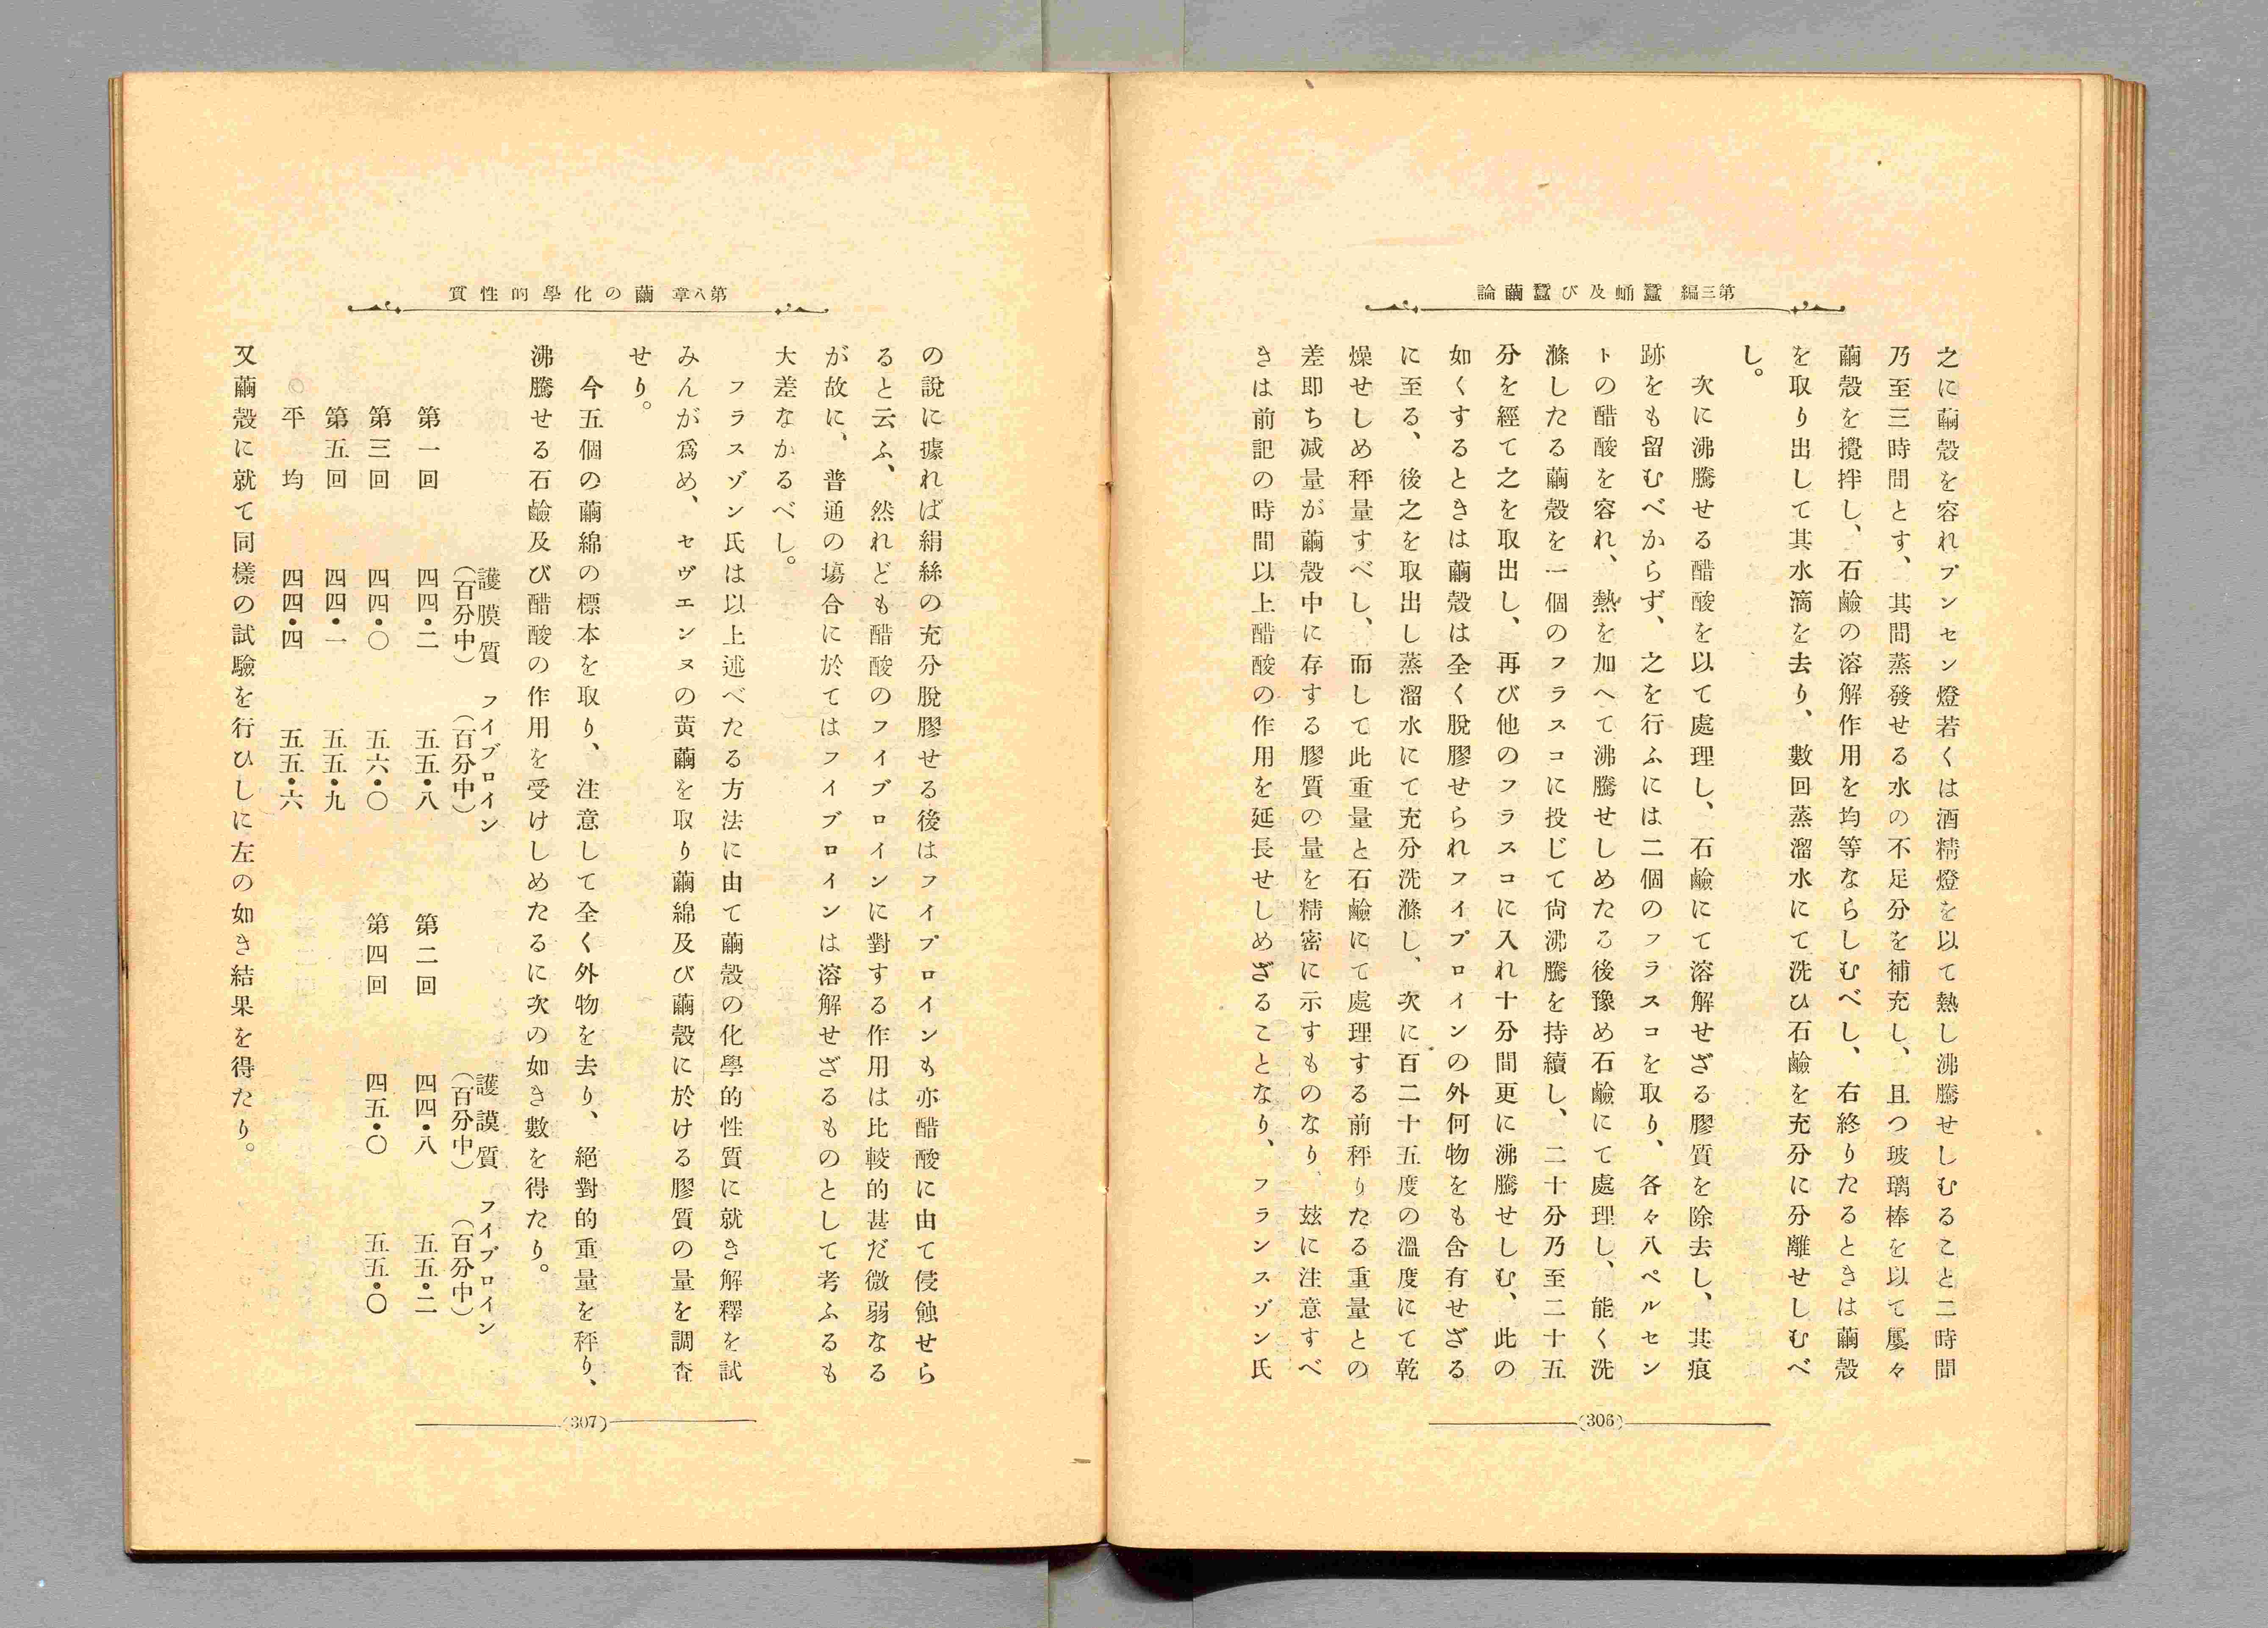 第三編　蠶蛹及び蠶繭論
之に繭殼を容れブンセン燈若くは酒精燈を以て熱し沸騰せしむること二時間
乃至三時間とす、其間蒸發せる水の不足分を補充し、且つ玻璃棒を以て屢々
繭殼を攪拌し、石鹼の溶解作用を均等ならしむべし、右終りたるときは繭殼
を取り出して其水滴を去り、數回蒸溜水にて洗ひ石鹼を充分に分離せしむべ
し。
次に沸騰せる醋酸を以て處理し、石鹼にて溶解せざる膠質を除去し、其痕
跡をも留むべからず、之を行ふには二個のフラスコを取り、各々八ペルセン
トの醋酸を容れ、熱を加へて沸騰せしめたる後豫め石鹼にて處理し、能く洗
滌したる繭殼を一個のフラスコに投じて尙沸騰を持續し、二十分乃至二十五
分を經て之を取出し、再び他のフラスコに入れ十分間更に沸騰せしむ、此の
如くするときは繭殼は全く脫膠せられフイブロインの外何物をも含有せざる
に至る、後之を取出し蒸溜水にて充分洗滌し、次に百二十五度の溫度にて乾
燥せしめ秤量すべし、而して此重量と石鹼にて處理する前秤りたる重量との
差卽ち減量が繭殼中に存する膠質の量を精密に示すものなり、玆に注意すべ
きは前記の時間以上醋酸の作用を延長せしめざることなり、フランスゾン氏
(306)
第八章　繭の化學的性質
の說に據れば絹絲の充分脫膠せる後はフイブロインも亦醋酸に由て侵蝕せら
ると云ふ、然れども醋酸のフイブロインに對する作用は比較的甚だ微弱なる
が故に、普通の塲合に於てはフイブロインは溶解せざるものとして考ふるも
大差なかるべし。
フラスゾン氏は以上述べたる方法に由て繭殼の化學的性質に就き解釋を試
みんが爲め、セヴエンヌの黃繭を取り繭綿及び繭殼に於ける膠質の量を調査
せり。
今五個の繭綿の標本を取り、注意して全く外物を去り、絕對的重量を秤り、
沸騰せる石鹼及び醋酸の作用を受けしめたるに次の如き數を得たり。
護膜質　フイブロイン　護謨質　フイブロイン
(百分中)　(百分中)　(百分中)　(百分中)
第一回　四四・二　五五・八　第二回　四四・八　五五・二
第三回　四四・〇　五六・〇　第四回　四五・〇　五五・〇
第五回　四四・一　五五・九
○平均　四四・四　五五・六
又繭殼に就て同樣の試驗を行ひしに左の如き結果を得たり。
(307)